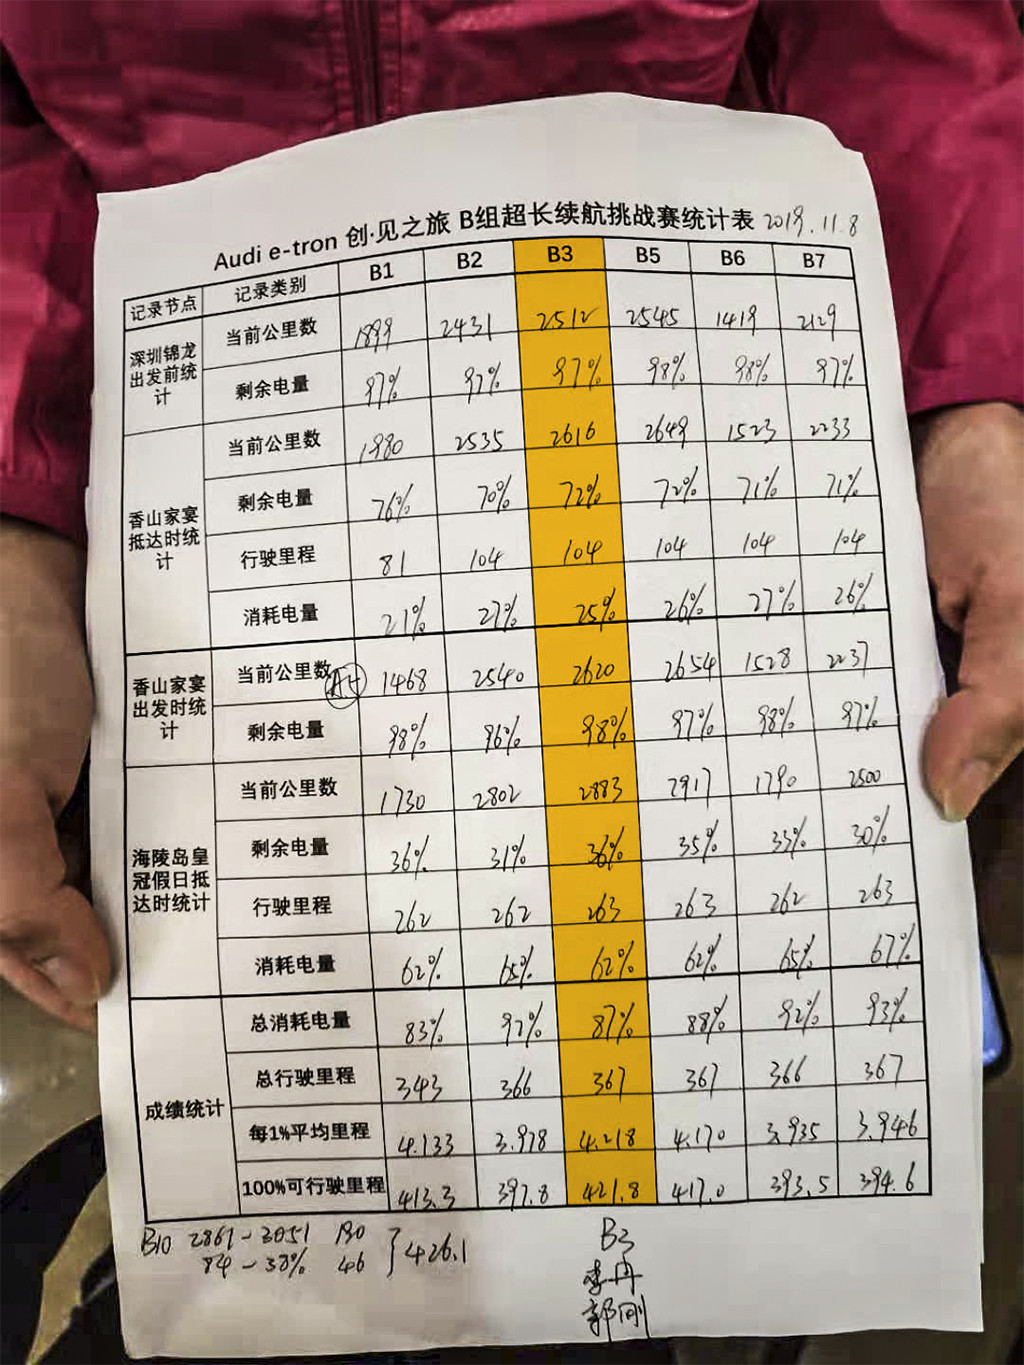 Audi e-tron 创·见之旅 B组超长续航挑战赛统计表 2019.11.8
记录节点 记录类别 B1 B2 B3 B5 B6 B7
深圳锦龙出发前统计 当前公里数 1899 2431 2512 2545 1419 2129
剩余电量 97% 97% 97% 98% 98% 97%
香山家宴抵达时统计 当前公里数 1980 2535 2616 2649 1523 2233
剩余电量 76% 70% 72% 72% 71% 71%
行驶里程 81 104 104 104 104 104
消耗电量 21% 27% 25% 26% 27% 26%
香山家宴出发时统计 当前公里数 1468 2540 2620 2654 1528 2237
剩余电量 98% 96% 98% 97% 98% 97%
海陵岛皇冠假日抵达时统计 当前公里数 1730 2802 2883 2917 1790 2500
剩余电量 36% 31% 36% 35% 33% 30%
行驶里程 262 262 263 263 262 263
消耗电量 62% 65% 62% 62% 65% 67%
成绩统计 总消耗电量 83% 92% 87% 88% 92% 93%
总行驶里程 343 366 367 367 366 367
每1%平均里程 4.133 3.978 4.218 4.170 3.935 3.946
100%可行驶里程 413.3 397.8 421.8 417.0 393.5 394.6
B10 2861-3051 190
84-38% 46 } 426.1
B3
李丹
郭刚